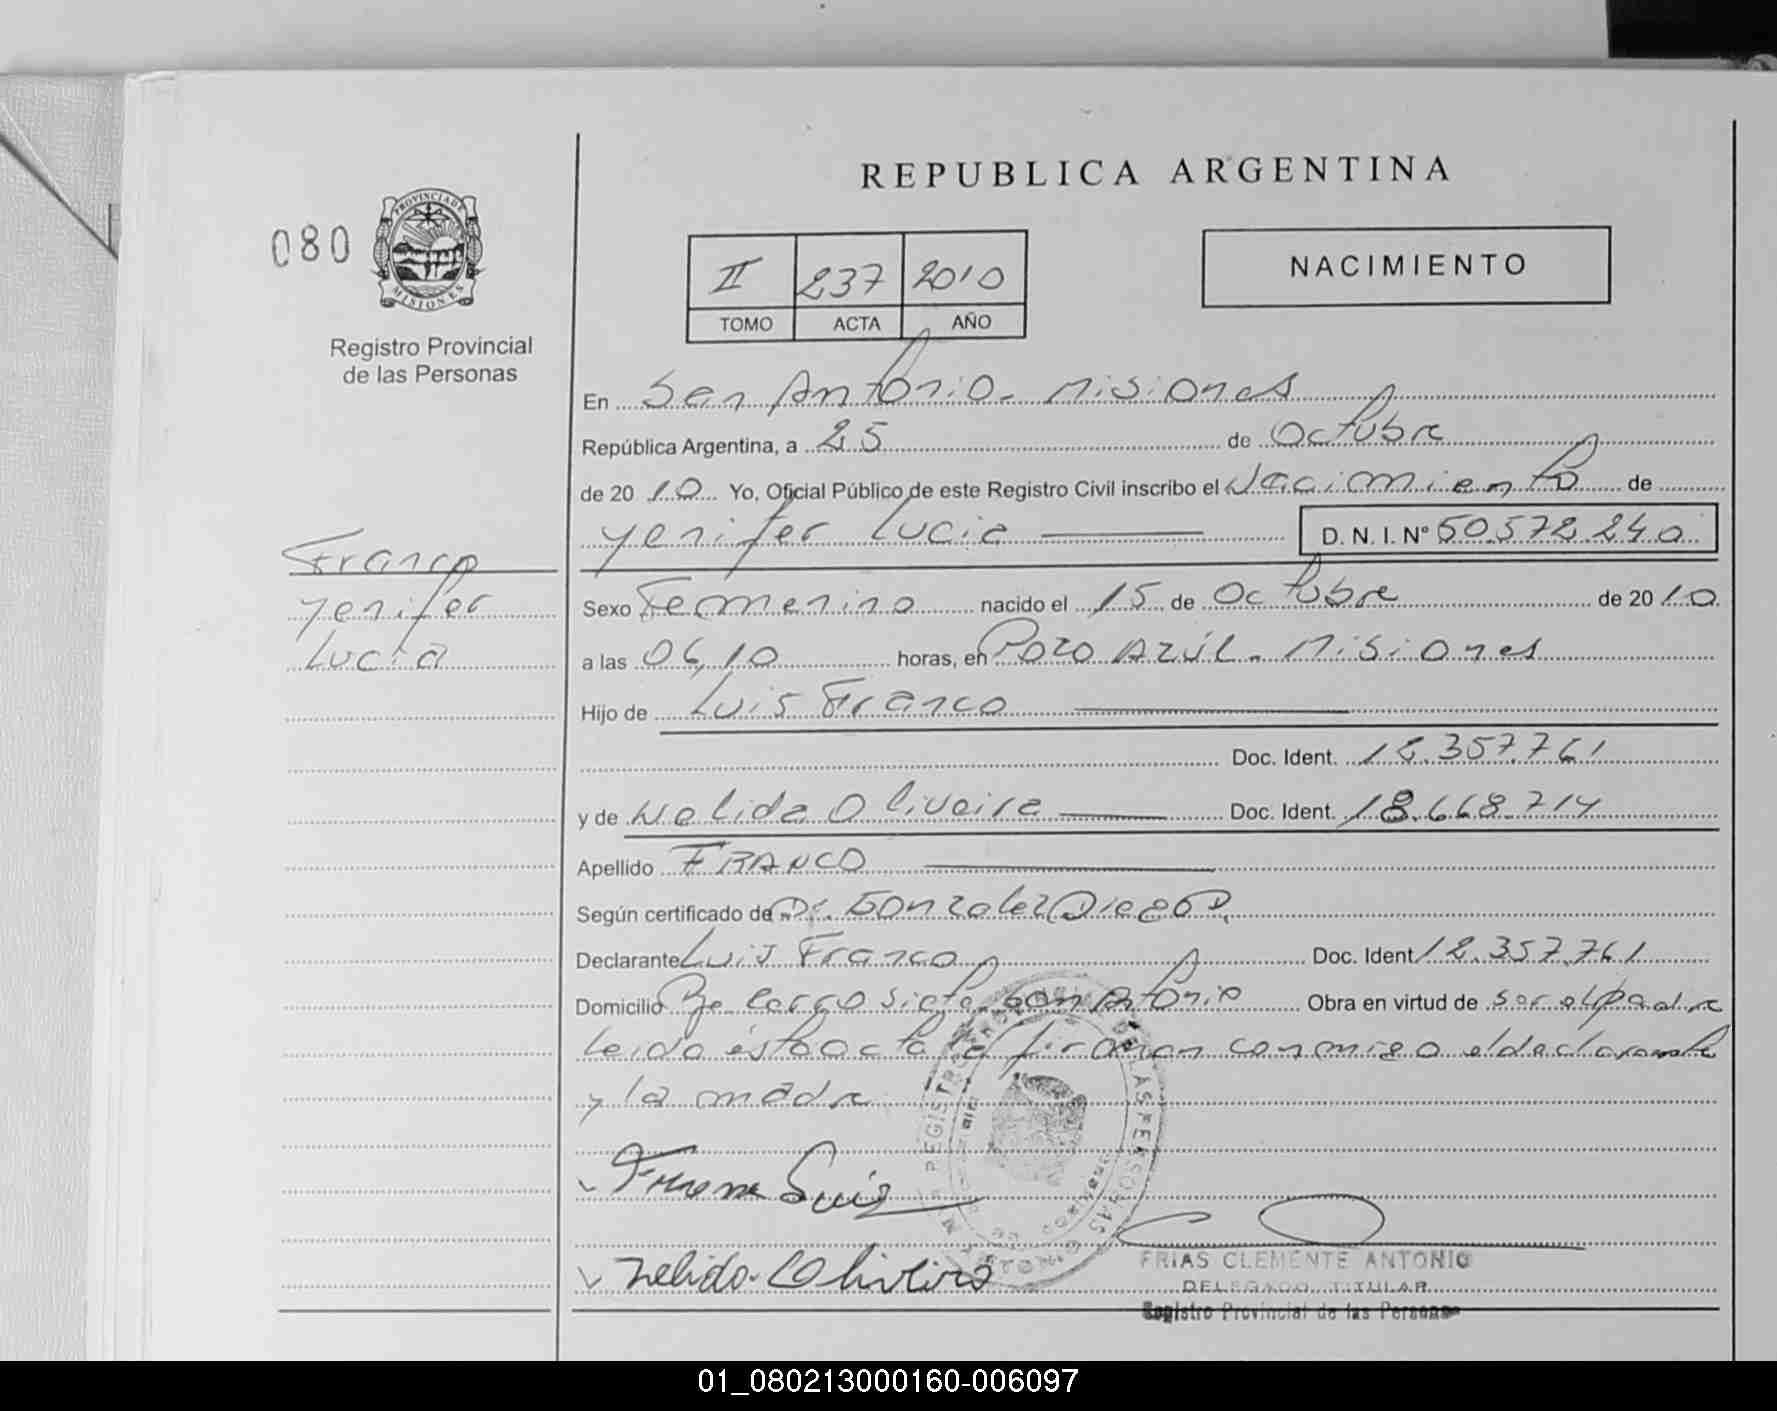 REPUBLICA ARGENTINA
080
PROVINCIA DE
MISIONES
Registro Provincial
de las Personas
II 237 2010
TOMO ACTA AÑO
NACIMIENTO
En San Antonio - Misiones
República Argentina, a 25 de Octubre
de 2010 Yo, Oficial Público de este Registro Civil inscribo el Nacimiento de
Yenifer Lucia D. N. I. Nº 50.572.240
Franco
Yenifer
Lucia
Sexo Femenino nacido el 15 de Octubre de 2010
a las 06,10 horas, en Pozo Azúl - Misiones
Hijo de Luis Franco
Doc. Ident. 12.357.761
y de Nelida Oliveira Doc. Ident. 18.668.714
Apellido FRANCO
Según certificado de Dr. Gonzalez Diego D.
Declarante Luis Franco Doc. Ident 12.357.761
Domicilio Pje Cerro Siete San Antonio Obra en virtud de ser el padre
Leida esta acta la firman conmigo el declarante
y la madre
Franco Luis
Nelida Oliveira
REGISTRO PROVINCIAL DE LAS PERSONAS
FRIAS CLEMENTE ANTONIO
DELEGADO TITULAR
Registro Provincial de las Personas
01_080213000160-006097